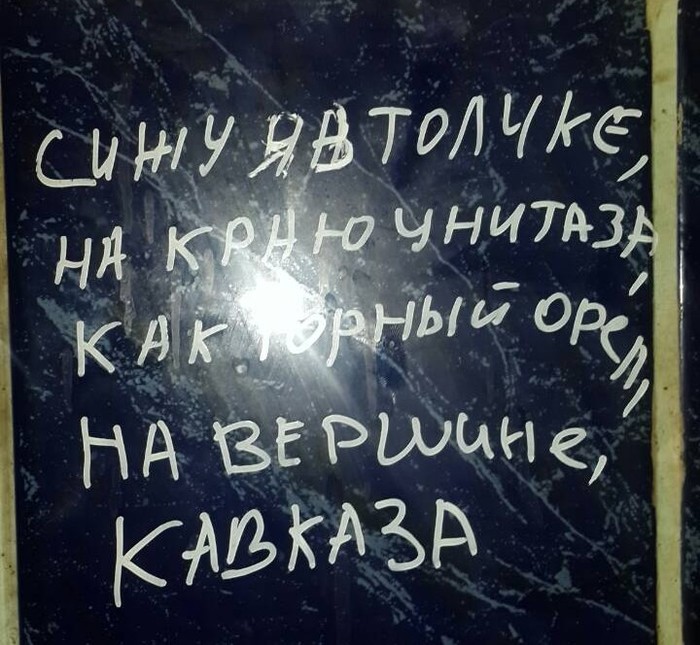 СИЖУ НА ТОЛЧКЕ,
НА КРАЮ УНИТАЗА,
КАК ГОРНЫЙ ОРЕЛ,
НА ВЕРШИНЕ,
КАВКАЗА